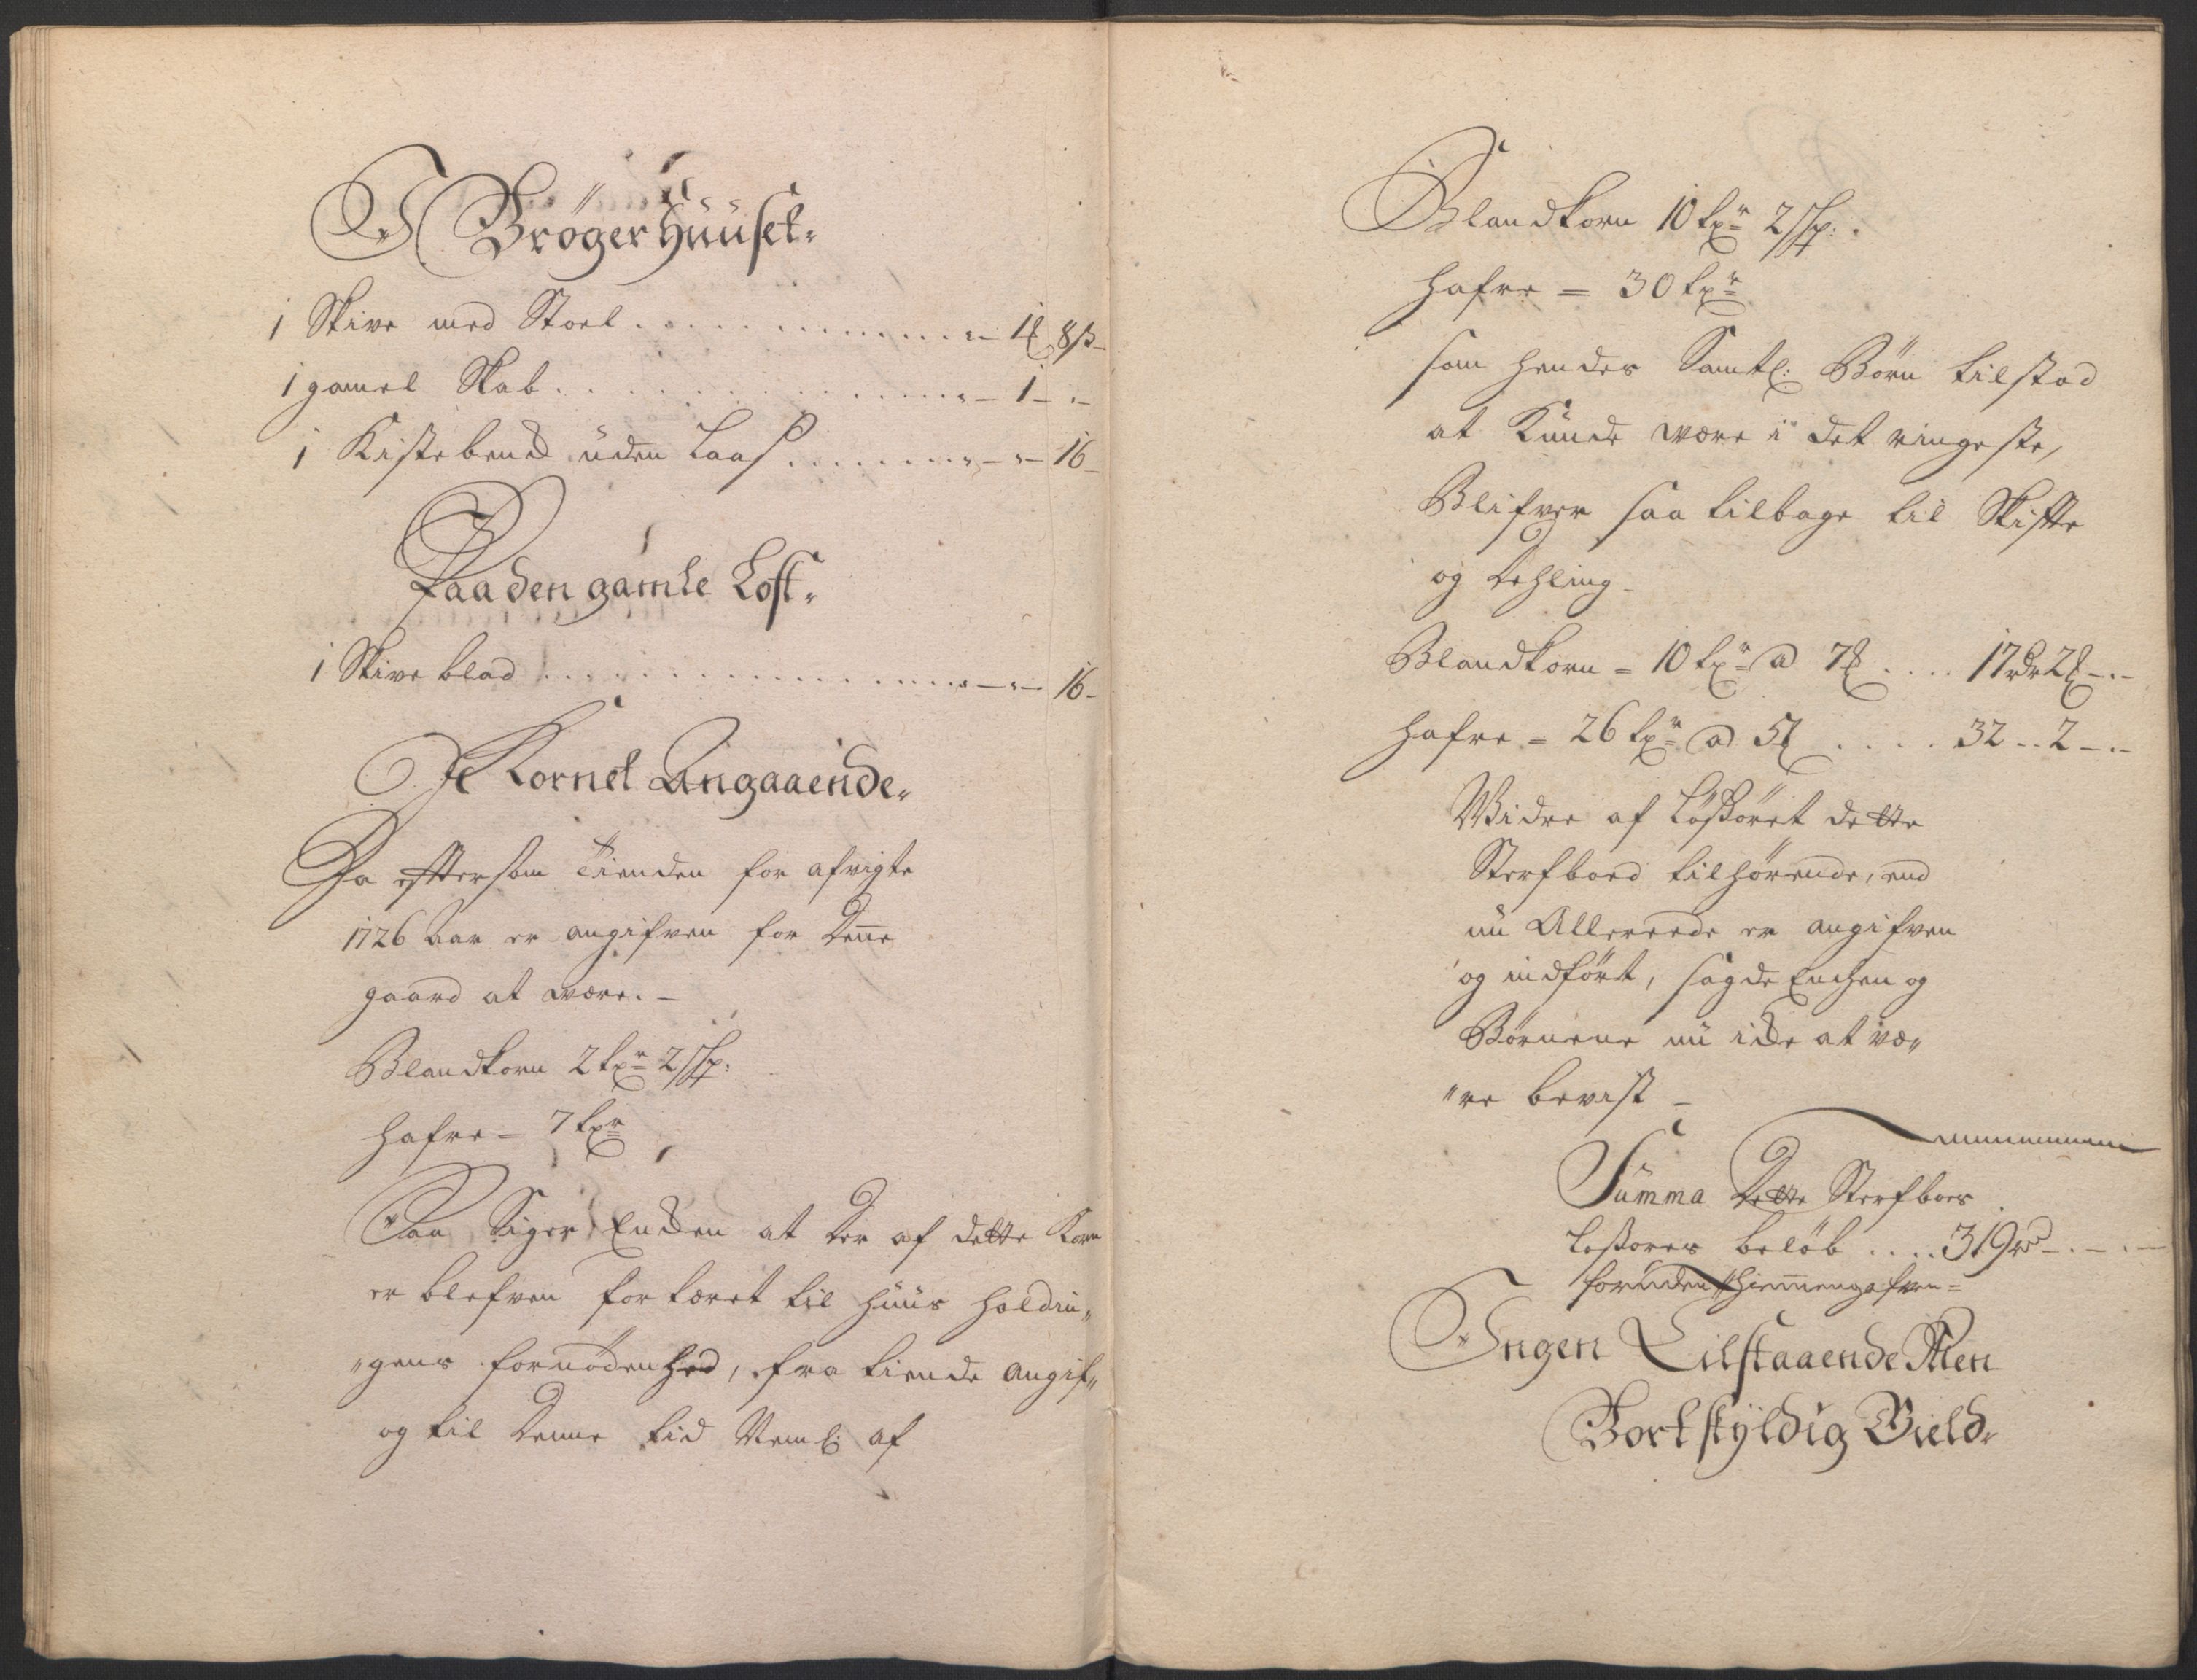 I Brøgerhuuset
1 Skive med Stoel . . . . . . . . . . - 1 8 ß -
1 gamel Skab . . . . . . . . . . - 1 - -
1 Kistebencl uden Laas . . . . . . . - - 16 -
Paa den gamle Loft
1 Skive blad . . . . . . . . . . - - 16 -
Kornet Angaaende
Da efftersom Tienden for afvigte
1726 Aar er angifven for Denne
gaard at være. -
Blandkorn 2 tr 2 Sp:
Hafre = 7 tr
Saa Siger Encken at der af dette Korn
er blefven fortæret til huus holdin„
„gens fornødenhed, fra tiende angif„
og til denne tid Neml: af
Blandkorn 10 tr 2 Sp:
Hafre = 30 tr
som hendes Samtl: Børn tilstod
at kunde være i det ringeste,
Blifver saa tilbage til Skiffte
og Dehling -
Blandkorn = 10 tr a 7 . . . . 17 rdr 2 - -
Hafre = 26 tr a 5 . . . . 32 . . 2 - -
Widre af Løsøret dette
Sterfboed tilhørende, end
nu Allereede er angifven
og indført, sagde Enchen og
Børnene nu icke at væ„
„re bevist -
Summa Dette Sterfboes
Løsøres beløb . . . . 319 rd - . - . -
foruden hiemmengafven =
Ingen Tilstaaende Men
Bortskyldig Gield